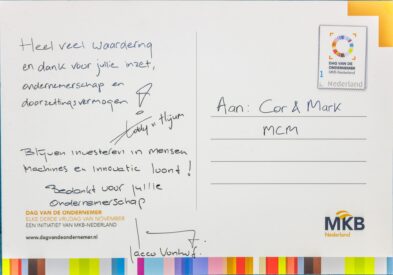 Heel veel waardering
en dank voor jullie inzet,
ondernemerschap en
doorzettingsvermogen
Eddy v Hijum
Blijven investeren in mensen
Machines en innovatie loont!
Bedankt voor jullie
Ondernemerschap
DAG VAN DE ONDERNEMER
ELKE DERDE VRIJDAG VAN NOVEMBER
EEN INITIATIEF VAN MKB-NEDERLAND
www.dagvandeondernemer.nl
Jacco Vonhof
DAG VAN DE
ONDERNEMER
MKB-Nederland
1
Nederland
Aan: Cor & Mark
MCM
MKB
Nederland